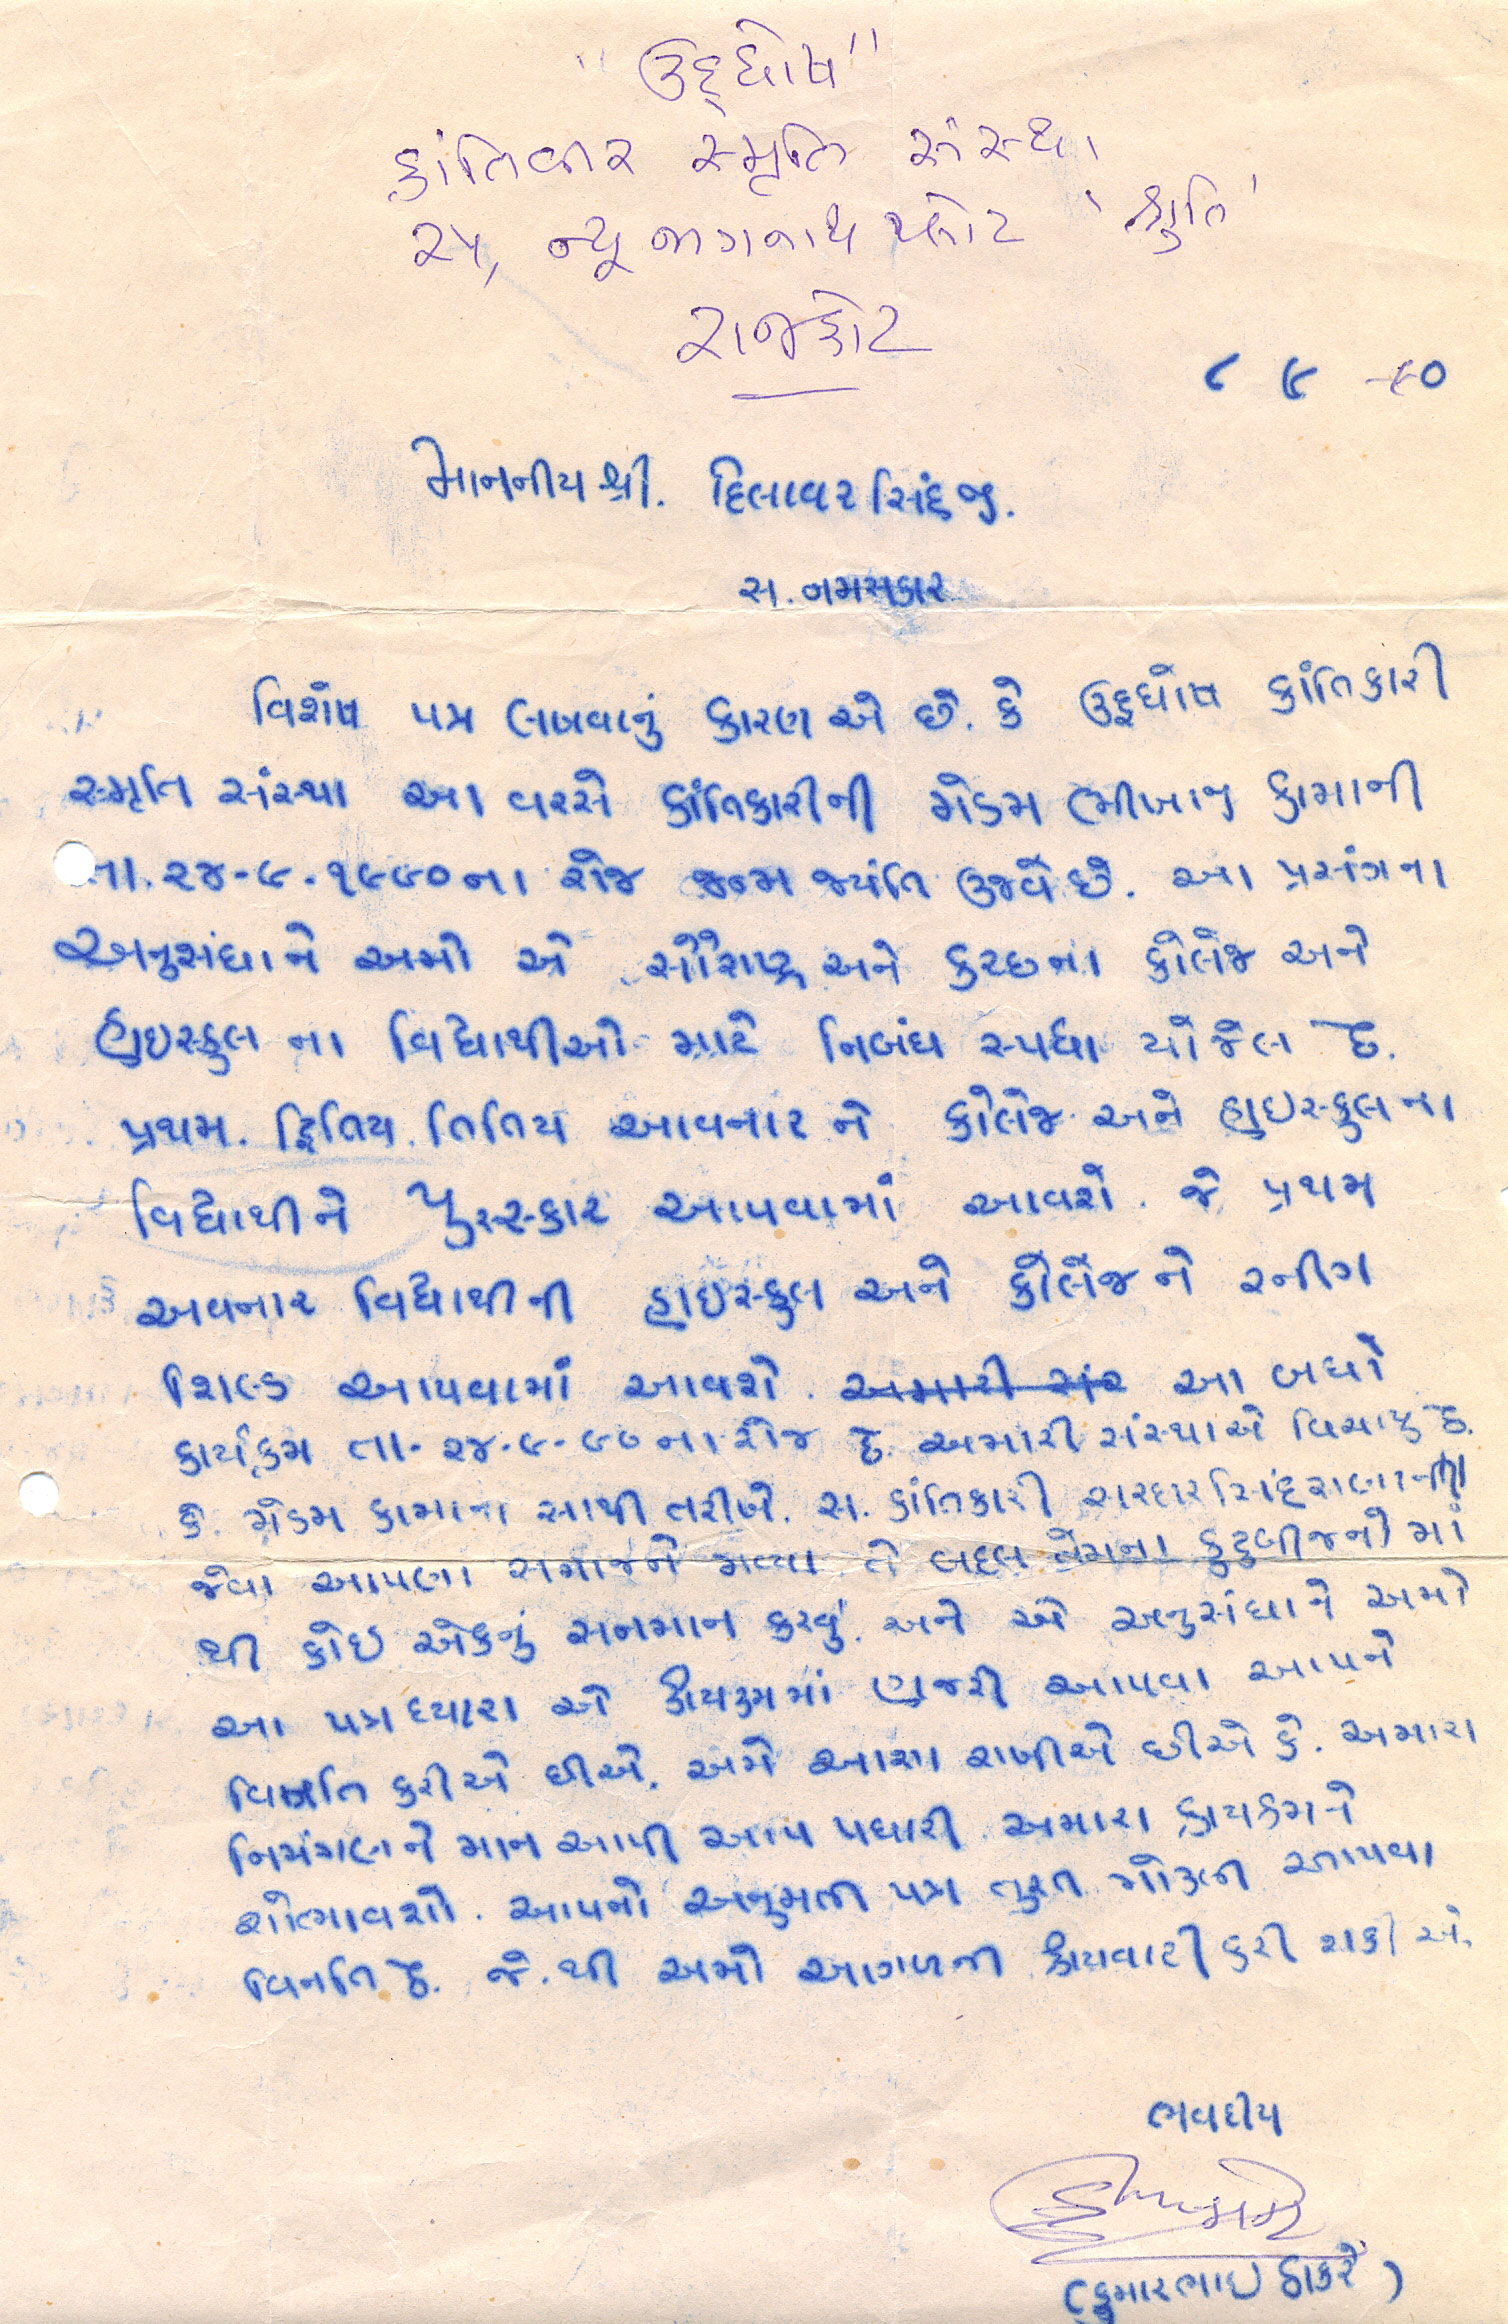 "ઉદ્ઘોષ"
ક્રાંતિવીર સ્મૃતિ સંસ્થા
૨૫, ન્યૂ જાગનાથ પ્લોટ 'શ્રુતિ'
રાજકોટ
૮ ૯ -૯૦
માનનીય શ્રી. દિલાવરસિંહજી.
સ. નમસકાર
વિશેષ પત્ર લખવાનું કારણ એ છે. કે ઉદ્દઘોષ ક્રાંતિકારી
સ્મૃતિ સંસ્થા આ વરસે ક્રાંતિકારીની મેડમ ભીખાજી કામાની
તા. ૨૪-૯-૧૯૯૦ના રોજ જન્મ જયંતિ ઉજવે છે. આ પ્રસંગના
અનુસંધાને અમો એ સૌરાષ્ટ્ર અને કચ્છના કોલેજ અને
હાઇસ્કુલ ના વિદ્યાથીઓ માટે નિબંધ સ્પર્ધા યોજેલ છે.
પ્રથમ. દ્વિતિય. તિતિય આવનાર ને કોલેજ અને હાઇસ્કુલના
વિદ્યાથીને પુરસ્કાર આપવામાં આવશે. જે પ્રથમ
અવનાર વિદ્યાથીની હાઇસ્કુલ અને કોલેજ ને રનીગ
શિલ્ડ આપવામાં આવશે. અમારી સંર આ બધો
કાર્યક્રમ તા. ૨૪-૯-૯૦ના રોજ છે. અમારી સંસ્થાએ વિચાર્યુ છે.
કે. મેડમ કામાના સાથી તરીખે. સ. ક્રાંતિકારી સરદારસિંહ રાણા
જેવા આપણા સમાજને મળ્યા તે બદલ તેમના કુટુબીજનો માં
થી કોઇ એકનું સનમાન કરવું. અને એ અનુસંધાને અમો
આ પત્ર દ્વારા એ કાર્યક્રમમાં હાજરી આપવા આપને
વિનતિ કરીએ છીએ. અમે આશા રાખીએ છીએ કે. અમારા
નિમંત્રણને માન આપી આપ પધારી અમારા કાર્યક્રમને
શોભાવશો. આપનો અનુમતી પત્ર તુરત મોકલી આપવા
વિનતિ છે. જે. થી અમો આગળની કાર્યવાહી કરી શકીએ.
ભવદીય
(કુમારભાઇ ઠાકરે)